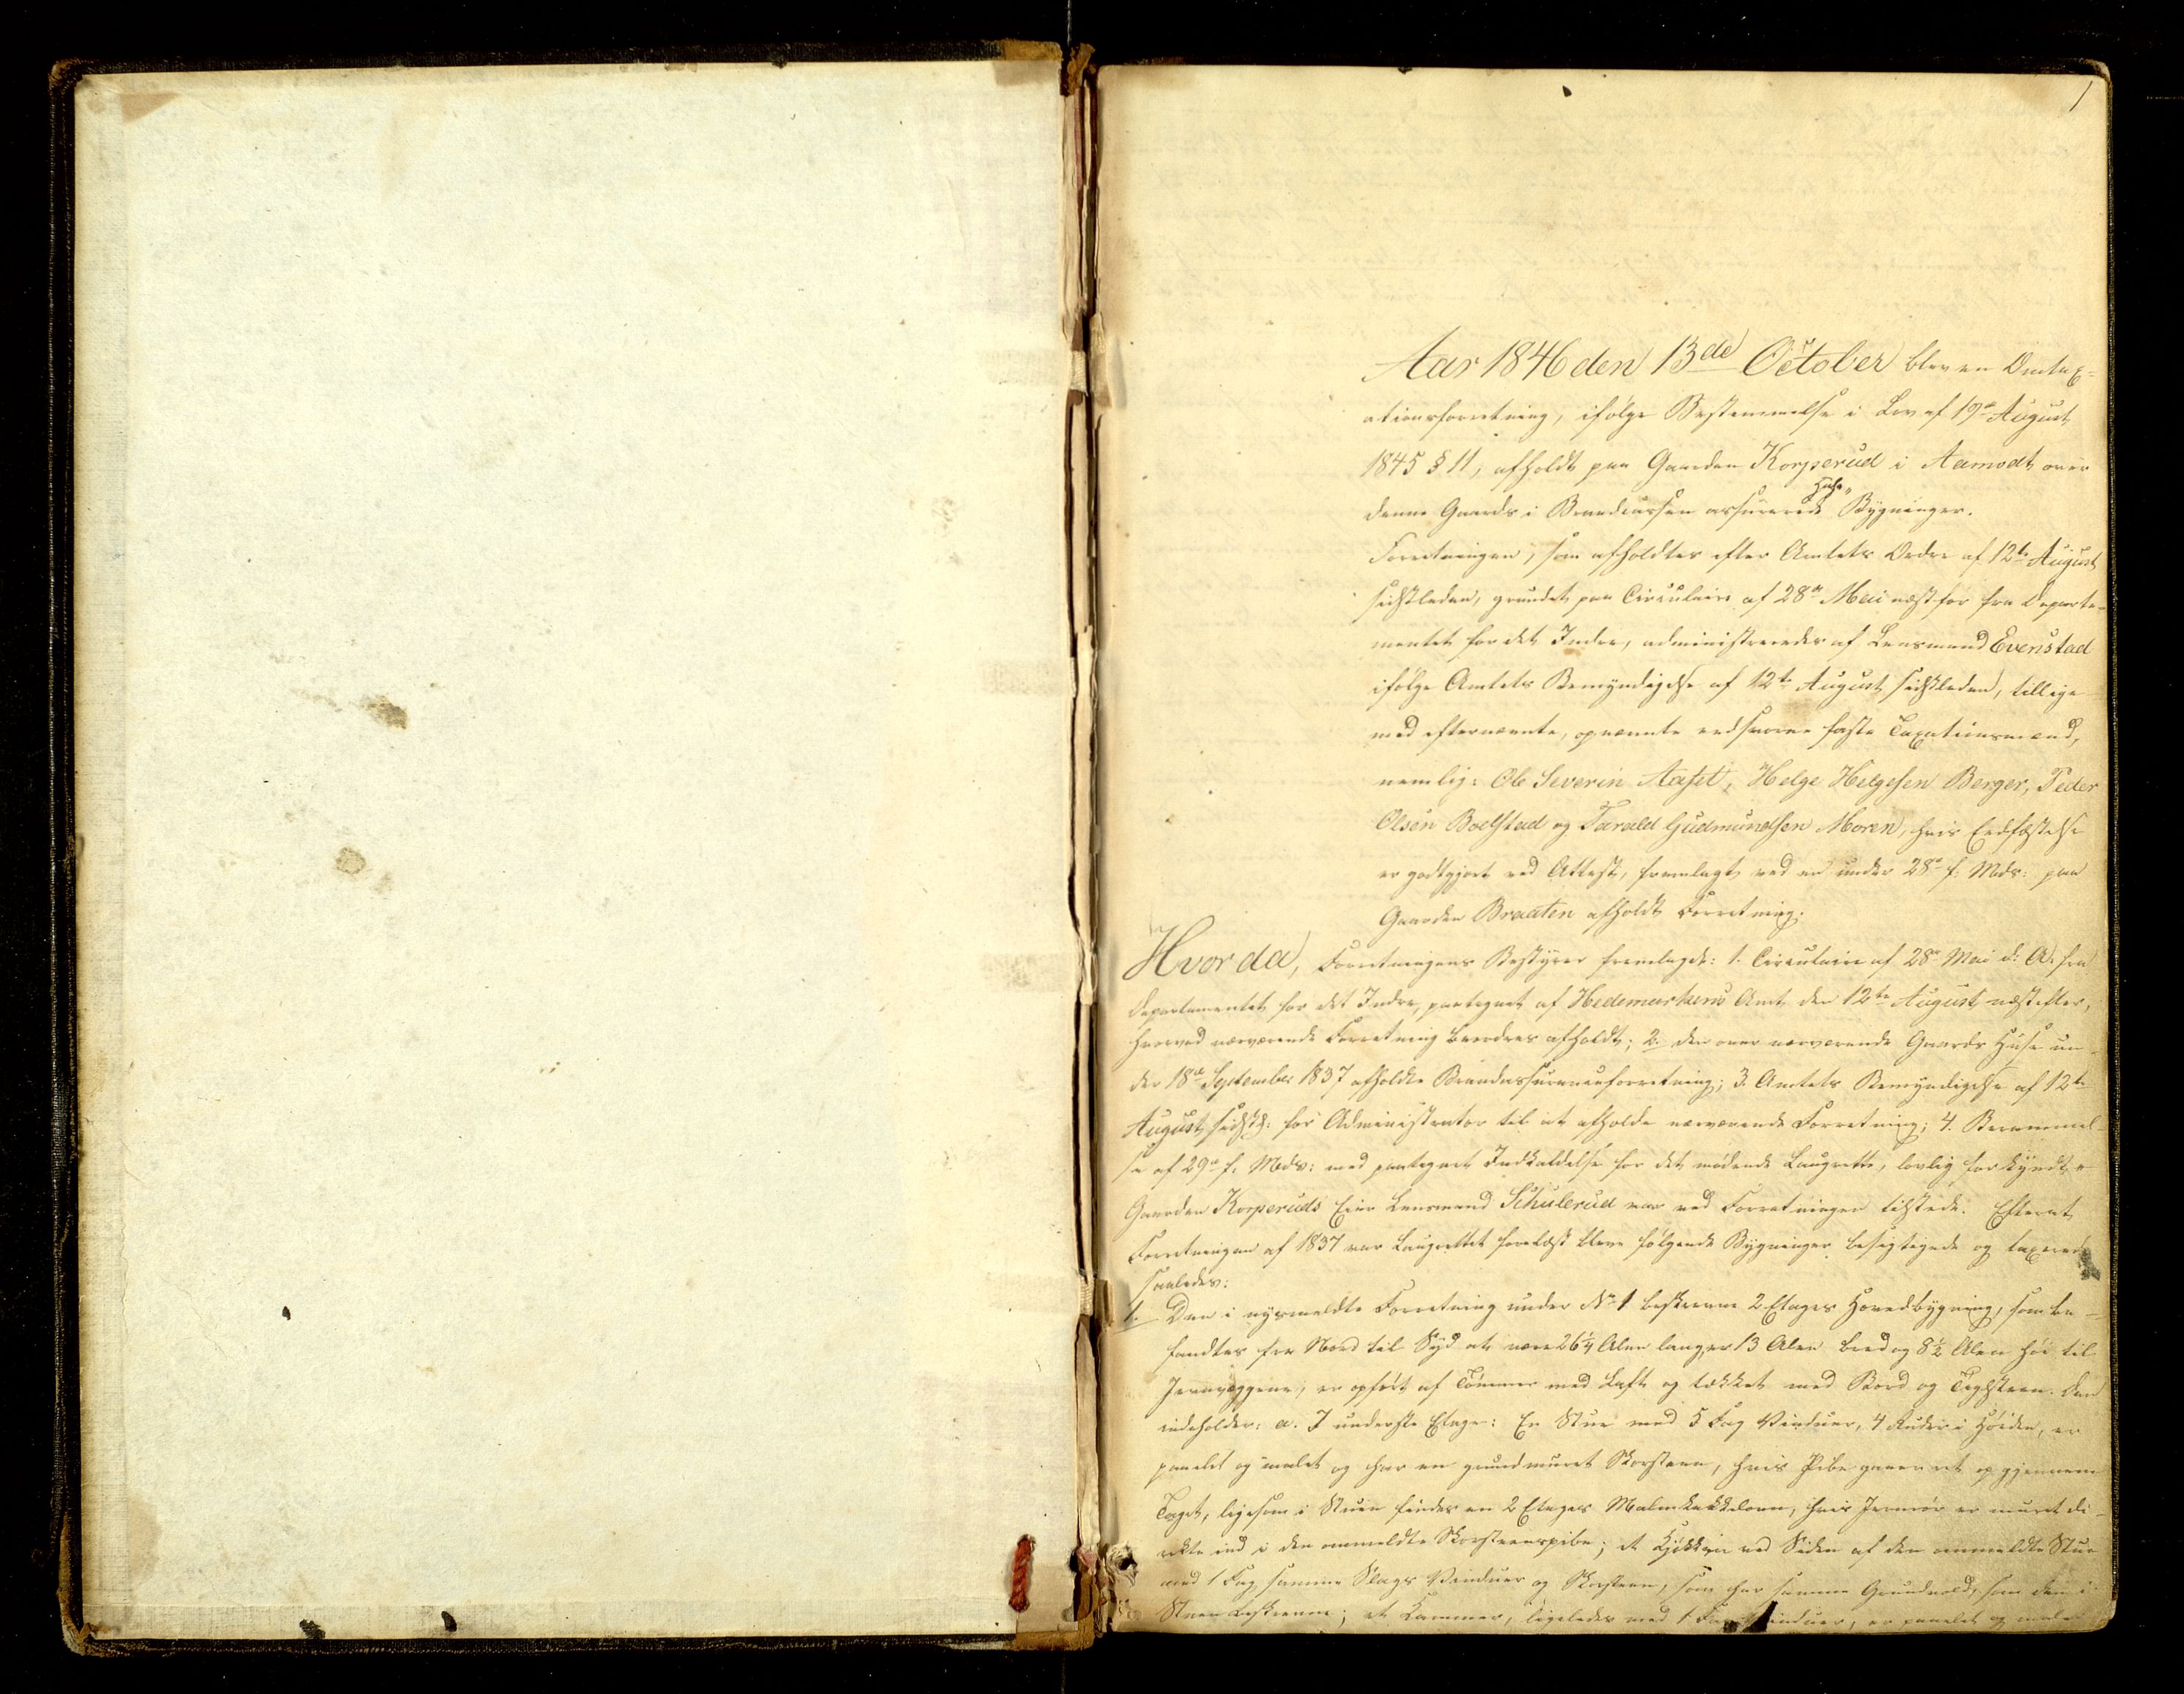 1
Aar 1846 den 13de October blev en Omtax-
ationsforretning, ifølge Bestemmelse i Lov af 19de August
1845 § 11, afholdt paa Gaarden Korperud i Aamodt over
denne Gaards i Brandcassen assurerede Huse,, Bygninger.
Forretningen, som afholdtes efter Amtets Ordre af 12te August
sidstleden, grundet paa Circulaire af 28de Mai næstfør fra Departe-
mentet for det Indre, administreredes af Lensmand Evenstad
ifølge Amtets Bemyndigelse af 12te August sidstleden, tillige
med efternævnte, opnævnte eedsvorne faste Taxationsmænd,
nemlig: Ole Severin Aaset, Helge Helgesen Berger, Peder
Olsen Bolstad og Tarald Gudmundsen Moren, hvis Eedfæstelse
er godtgjort ved Attest, fremlagt ved en under 28de f. Mds: paa
Gaarden Braaten afholdt Forretning.
Hvor da, Forretningens Bestyrer fremlagde: 1. Circulaire af 28de Mai d: A: fra
Departementet for det Indre, paategnet af Hedemarkens Amt den 12te August næstefter,
hvorved nærværende Forretning beordres afholdt; 2. den over nærværende Gaards Huse un-
der 18de September 1837 afholdte Brandassuranceforretning; 3. Amtets Bemyndigelse af 12te
August sidstl: for Administrator til at afholde nærværende Forretning; 4. Berammel-
se af 29de f. Mds: med paategnet Indkaldelse for det mødende Laugrette, lovlig forkyndt.
Gaarden Korperuds Eier Lensmand Schulerud var ved Forretningen tilstede. Efterat
Forretningen af 1837 var Laugrettet forelæst bleve følgende Bygninger besigtigede og taxerede
saaledes:
1. Den i nysmeldte Forretning under No 1 beskrevne 2 Etages Hovedbygning, som be-
fandtes fra Nord til Syd at være 26 1/4 Alen lang, er 13 Alen bred og 8 1/2 Alen høi til
Jevnvæggene, er opført af Tømmer med Laft og tækket med Bord og Tagsteen. Den
indeholder: a. I underste Etage: En Stue med 5 Fag Vinduer, 4 Ruder i Høiden, er
panelet og malet og har en grundmuret Skorsteen, hvis Pibe gaaer ret op gjennem
Taget, ligesom i Stuen findes en 2 Etages Malmkakkelovn, hvis Jernrør er muret di-
rekte ind i den ommeldte Skorsteenspibe; et Kjøkken ved Siden af den ommeldte Stue
med 1 Fag samme Slags Vinduer og Skorsteen, som har samme Grundvold, som den i
Stuen beskrevne; et Kammer, ligeledes med 1 Fag Vinduer, er panelet og malet